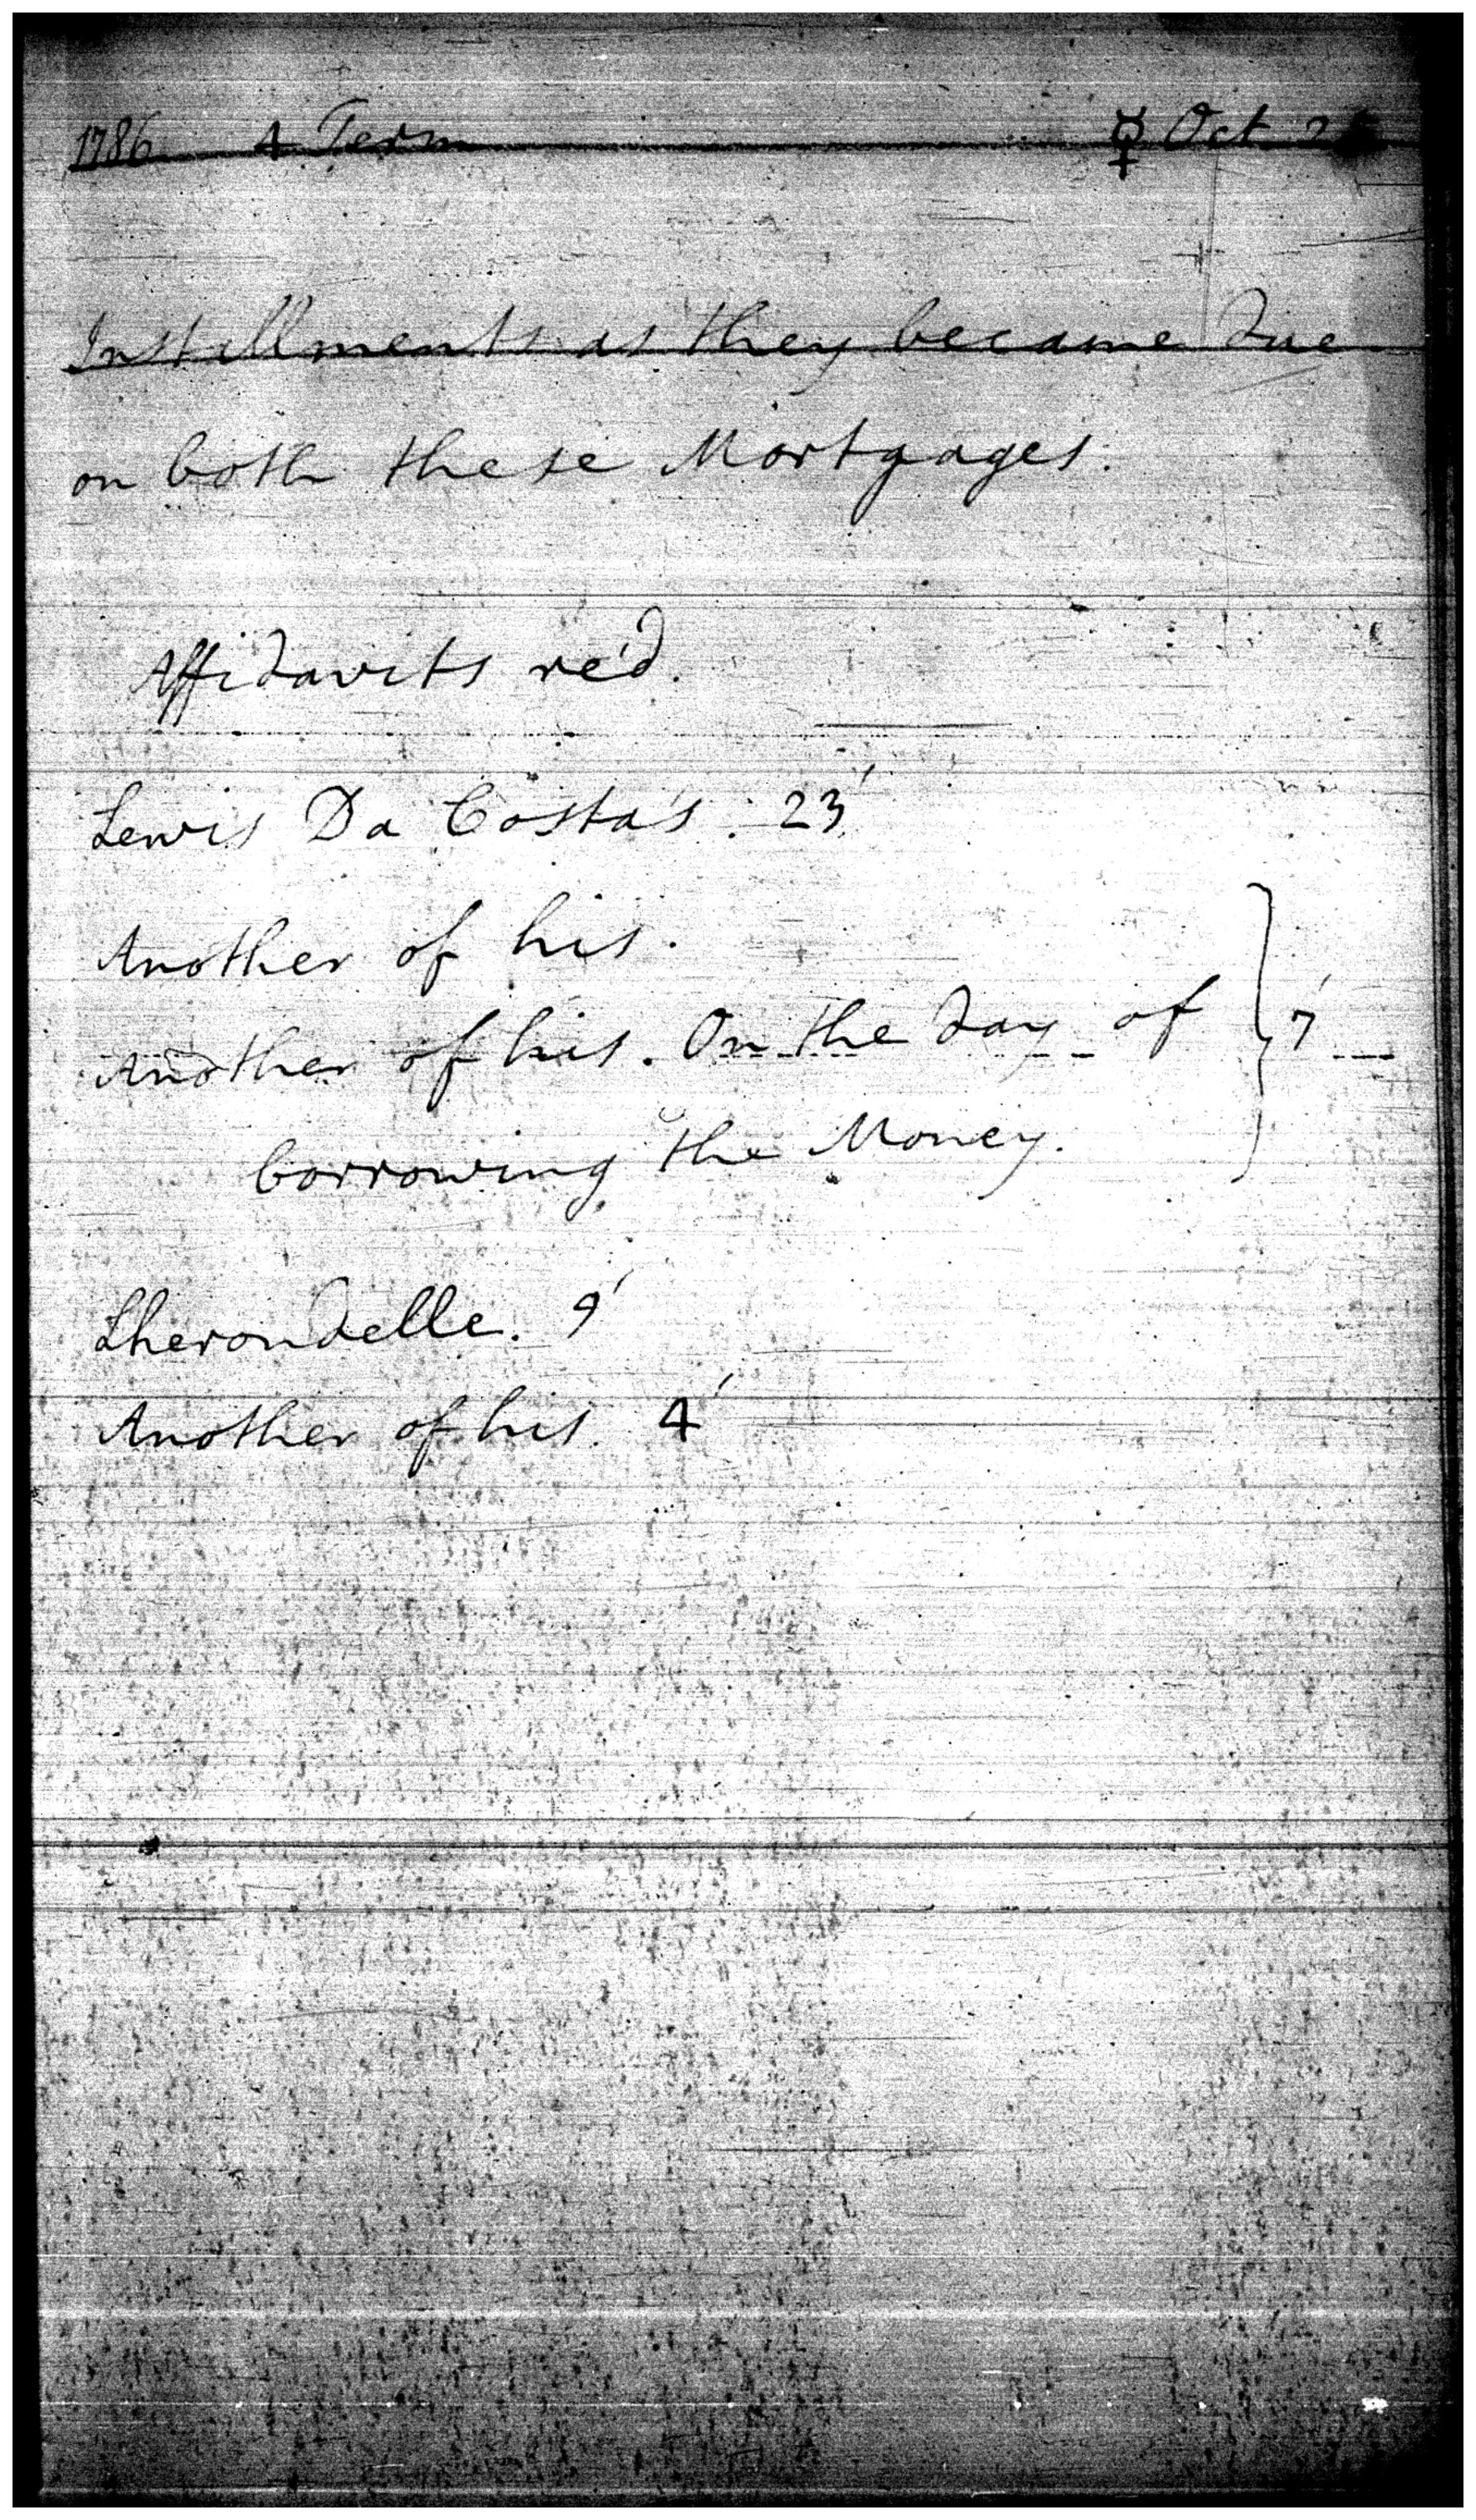 1786 4 Term ☿ Oct. 2
Installments as they became due
on both these Mortgages.
Affidavits re'd.
Lewis Da Costa's. 23'
Another of his.
Another of his. On the day of } 7'
borrowing the Money.
Lherondelle. 9'
Another of his. 4'